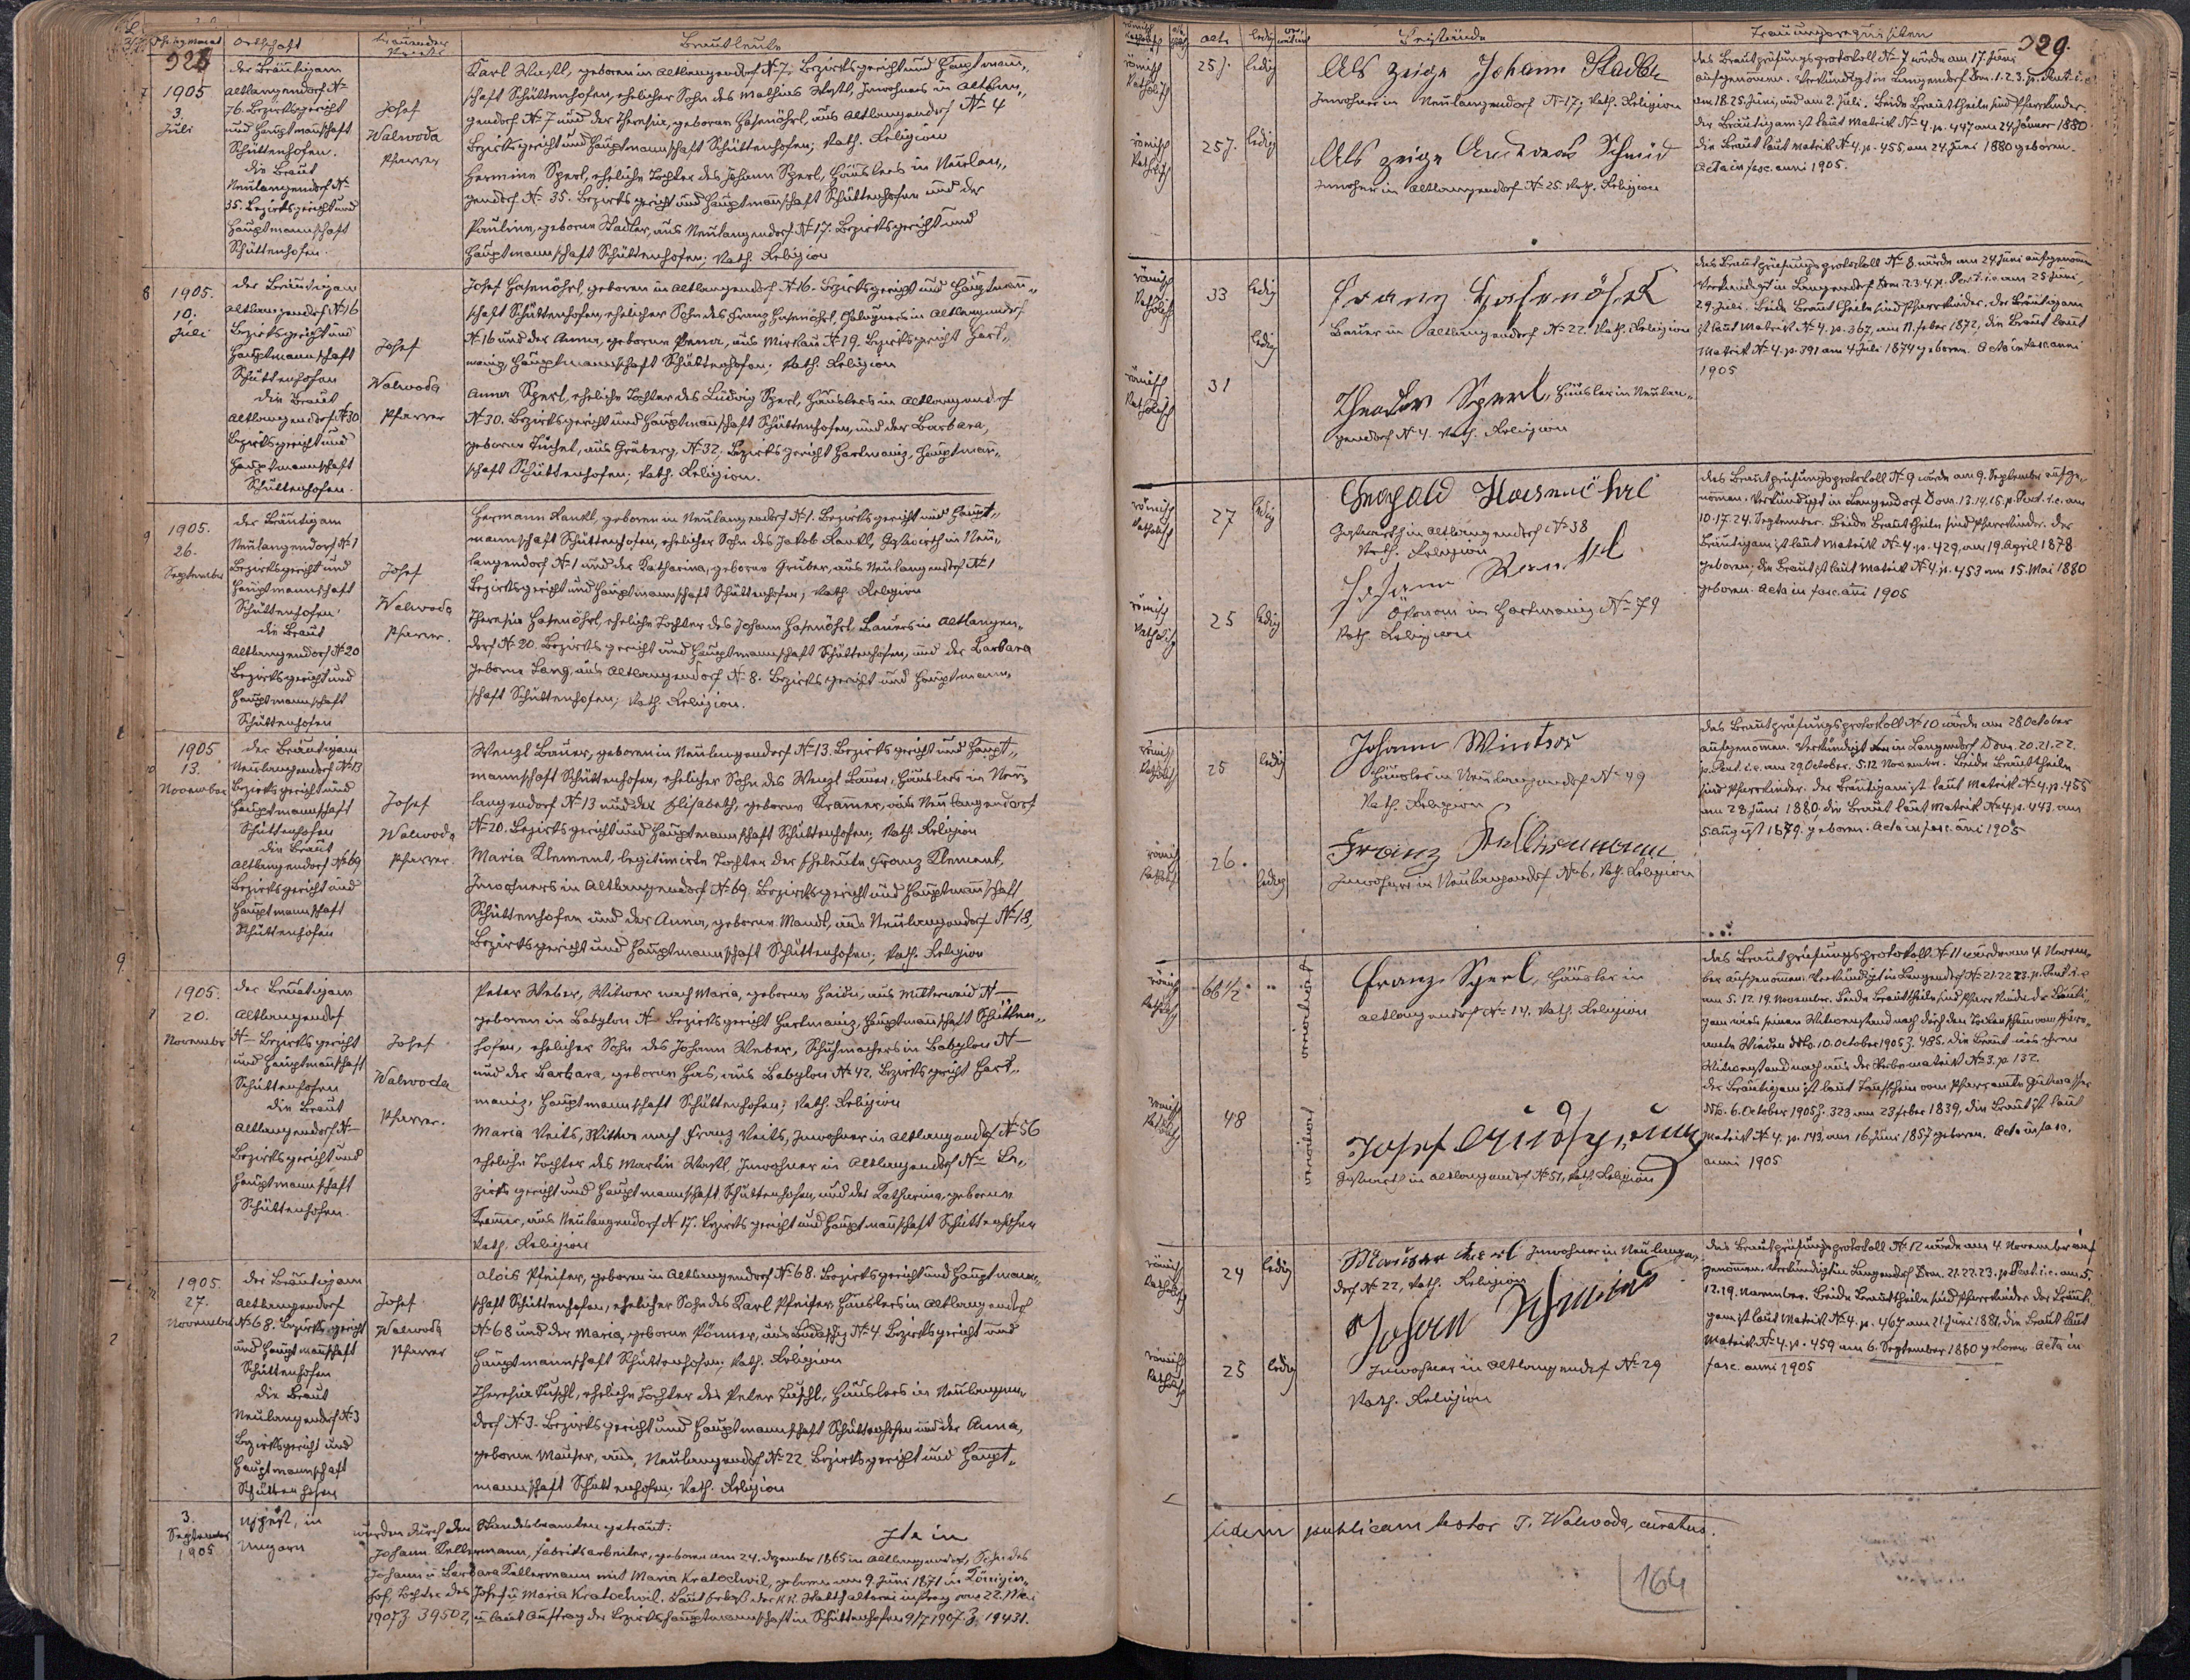 328
329.
Ortschaft
Brautleute
Beistände
1905
3.
Juli
der Bräutigam
Altlangendorf №
76. Bezirksgericht
und Hauptmannschaft
Schüttenhofen.
die Braut
Neulangendorf №
35. Bezirksgericht und
Hauptmannschaft
Schüttenhofen.
Josef
Walwoda
Pfarrer
Karl Wastl, geboren in Altlangendorf № 7, Bezirksgericht und Hauptmann-
schaft Schüttenhofen, ehelicher Sohn des Mathias Wastl, Inwohners in Altlan-
gendorf № 7 und der Theresia, geborene Hasenöhrl, aus Altlangendorf № 4
Bezirksgericht und Hauptmannschaft Schüttenhofen; kath. Religion
Hermine Sperl, eheliche Tochter des Johann Sperl, Häuslers in Neulan-
gendorf № 35. Bezirksgericht und Hauptmannschaft Schüttenhofen und der
Pauline, geborene Stadler, aus Neulangendorf № 17. Bezirksgericht und
Hauptmannschaft Schüttenhofen; kath. Religion
römisch
katholisch
25 J. ledig
römisch
katholisch
25 J. ledig
Als Zeuge Johann Stadler
Inwohner in Neulangendorf № 17, kath. Religion
Als Zeuge Andreas Schmid
Inwohner in Altlangendorf № 25 kath. Religion
Das Brautprüfungsprotokoll № 7 wurde am 17. Juni
aufgenommen. Verkündigt in Langendorf Dom. 1. 2. 3. p. Pent. i. e.
am 18. 25. Juni, und am 2. Juli. Beide Brauttheile sind Pfarrkinder.
Der Bräutigam ist laut Matrik № 4. p. 447 am 24 Jänner 1880
die Braut laut Matrik № 4. p. 455, am 24. Juni 1880 geboren.
Acta in fasc. anni 1905.
8
1905.
10.
Juli
der Bräutigam
Altlangendorf № 16
Bezirksgericht und
Hauptmannschaft
Schüttenhofen
die Braut
Altlangendorf № 30
Bezirksgericht und
Hauptmannschaft
Schüttenhofen.
Josef
Walwoda
Pfarrer
Josef Hasenöhrl, geboren in Altlangendorf № 16. Bezirksgericht und Hauptmann-
schaft Schüttenhofen, ehelicher Sohn des Franz Hasenöhrl, in Altlangendorf
№ 16 und der Anna, geborene aus Mirkau № 19. Bezirksgericht Hart-
manitz, Hauptmannschaft Schüttenhofen. kath. Religion
Anna Sperl, eheliche Tochter des Ludwig Sperl, Häuslers in Altlangendorf
№ 30. Bezirksgericht und Hauptmannschaft Schüttenhofen, und der Barbara,
geborene aus Grüberg, № 32. Bezirksgericht Hartmanitz, Hauptmann-
schaft Schüttenhofen; kath. Religion.
römisch
katholisch
33 ledig
ledig
römisch
katholisch
31
Franz Hasenöhrl
Bauer in Altlangendorf № 22. kath. Religion
Theodor Sperl, Häusler in Neulan-
gendorf № 4. kath. Religion
Das Brautprüfungsprotokoll № 8. wurde am 24 Juni aufgenommen
Verkündigt in Langendorf Dom. 2. 3. 4. p. Pent. i. e. am 25 Juni,
2. 9. Juli. Beide Brauttheile sind Pfarrkinder. Der Bräutigam
ist laut Matrik № 4. p. 367, am 11. Feber 1872, die Braut laut
Matrik № 4. p. 391 am 4 Juli 1874 geboren. Acta in fasc. anni
1905
9
1905.
26.
September
der Bräutigam
Neulangendorf № 1
Bezirksgericht und
Hauptmannschaft
Schüttenhofen,
die Braut
Altlangendorf № 20
Bezirksgericht und
Hauptmannschaft
Schüttenhofen
Josef
Walwoda
Pfarrer.
Hermann Rankl, geboren in Neulangendorf № 1. Bezirksgericht und Haupt-
mannschaft Schüttenhofen, ehelicher Sohn des Jakob Rankl, Gastwirth in Neu-
langendorf № 1 und der Katharina, geborene Gruber, aus Neulangendorf № 1
Bezirksgericht und Hauptmannschaft Schüttenhofen; kath. Religion
Theresia Hasenöhrl, eheliche Tochter des Johann Hasenöhrl Bauers in Altlangen-
dorf № 20. Bezirksgericht und Hauptmannschaft Schüttenhofen, und der Barbara
geborene Lang, aus Altlangendorf № 8. Bezirksgericht und Hauptmann-
schaft Schüttenhofen; kath. Religion.
römisch
katholisch
27 ledig
römisch
katholisch
25 ledig
Leopold Hasenöhrl
Gastwirth in Altlangendorf № 38
kath. Religion
Johann Rankl
Ökonom in Hartmanitz № 79
kath. Religion
Das Brautprüfungsprotokoll № 9 wurde am 9. September aufge-
nommen. Verkündigt in Langendorf Dom. 13. 14. 15. p. Pent. i. e. am
10. 17. 24. September. Beide Brauttheile sind Pfarrkinder. Der
Bräutigam ist laut Matrik № 4. p. 429, am 19. April 1878
geboren; die Braut ist laut Matrik № 4. p. 453 am 15. Mai 1880
geboren. Acta in fasc. anni 1905
1905
13.
November
der Bräutigam
Neulangendorf № 13
Bezirksgericht und
Hauptmannschaft
Schüttenhofen
die Braut
Altlangendorf № 69
Bezirksgericht und
Hauptmannschaft
Schüttenhofen
Josef
Walwoda
Pfarrer.
Wenzl Bauer, geboren in Neulangendorf № 13. Bezirksgericht und Haupt-
mannschaft Schüttenhofen, ehelicher Sohn des Wenzl Bauer, Häuslers in Neu-
langendorf № 13 und der Elisabeth, geborene Kramer, aus Neulangendorf
№ 20. Bezirksgericht und Hauptmannschaft Schüttenhofen; kath. Religion
Maria Klement, legitimirte Tochter der Eheleute Franz Klement,
Inwohners in Altlangendorf № 69. Bezirksgericht und Hauptmannschaft
Schüttenhofen und der Anna, geborene Mandl, aus Neulangendorf № 18,
Bezirksgericht und Hauptmannschaft Schüttenhofen; kath. Religion
römisch
katholisch
25 ledig
römisch
katholisch
26. ledig
Johann Winter
Häusler in Neulangendorf № 49
kath. Religion
Franz Kellermann
Inwohner in Neulangendorf № 6, kath. Religion
Das Brautprüfungsprotokoll № 10 wurde am 28 October
aufgenommen. Verkündigt in Langendorf Dom. 20. 21. 22.
p. Pent. i. e. am 29. October. 5. 12 November. Beide Brauttheile
sind Pfarrkinder. Der Bräutigam ist laut Matrik № 4. p. 455
am 28 Juni 1880, die Braut laut Matrik № 4. p. 443. am
5. August 1879. geboren. Acta in fasc. anni 1905
1905.
20.
November
der Bräutigam
Altlangendorf
№ – Bezirksgericht
und Hauptmannschaft
Schüttenhofen
die Braut
Altlangendorf № –
Bezirksgericht und
Hauptmannschaft
Schüttenhofen.
Josef
Walwoda
Pfarrer.
Peter Weber, Witwer nach Maria, geborene Haidn, aus Mitterwaid № –
geboren in Babylon № – Bezirksgericht Hartmanitz, Hauptmannschaft Schütten-
hofen, ehelicher Sohn des Johann Weber, Schuhmachers in Babylon № –
und der Barbara, geborene Has, aus Babylon № 42. Bezirksgericht Hart-
manitz, Hauptmannschaft Schüttenhofen; kath. Religion
Maria Veits, Witwe nach Franz Veits, Inwohner in Altlangendorf № 56
eheliche Tochter des Martin Wastl, Inwohner in Altlangendorf № – Be-
zirksgericht und Hauptmannschaft Schüttenhofen, und der Katharina, geborene
Kramer, aus Neulangendorf № 17. Bezirksgericht und Hauptmannschaft Schüttenhofen
kath. Religion
römisch
katholisch
66 1/2
verwitwet
römisch
katholisch
48
verwitwet
Franz Sperl, Häusler in
Altlangendorf № 14. kath. Religion
Josef
Gastwirth in Altlangendorf № 51, kath. Religion
Das Brautprüfungsprotokoll № 11 wurde am 4 Novem-
ber aufgenommen. Verkündigt in Langendorf № 21. 22. 23. p. Pent. i. e
am 5. 12. 19. November. Beide Brauttheile sind Pfarrkinder. Der Bräuti-
gam wies seinen Witwenstand nach durch den Todtenschein vom Pfarr-
amte ddto. 10. October 1905 Z. 485. Die Braut wies ihren
Witwenstand nach aus der Sterbematrik № 3. p. 132.
Der Bräutigam ist laut Taufschein vom Pfarramte Gutwasser
ddto. 6. October 1905 Z. 323 am 23 Feber 1839, die Braut ist laut
Matrik № 4. p. 143, am 16. Juni 1857 geboren. Acta in fasc.
anni 1905
1905
27.
November
der Bräutigam
Altlangendorf
№ 68. Bezirksgericht
und Hauptmannschaft
Schüttenhofen
die Braut
Neulangendorf № 3
Bezirksgericht und
Hauptmannschaft
Schüttenhofen
Josef
Walwoda
Pfarrer
Alois Pfeifer, geboren in Altlangendorf № 68. Bezirksgericht und Hauptmann-
schaft Schüttenhofen, ehelicher Sohn des Karl Pfeifer Häuslers in Altlangendorf
№ 68 und der Maria, geborene aus № 4. Bezirksgericht und
Hauptmannschaft Schüttenhofen; kath. Religion
Theresia Tuschl, eheliche Tochter des Peter Tuschl, Häuslers in Neulangen-
dorf № 3. Bezirksgericht und Hauptmannschaft Schüttenhofen und der Anna,
geborene Mauser, aus, Neulangendorf № 22 Bezirksgericht und Haupt-
mannschaft Schüttenhofen; kath. Religion
römisch
katholisch
24 ledig
römisch
katholisch
25 ledig
Inwohner in Neulangen-
dorf № 22, kath. Religion
Johann Schmid
Inwohner in Altlangendorf № 29
kath. Religion
Das Brautprüfungsprotokoll № 12 wurde am 4. November auf-
genommen. Verkündigt in Langendorf Dom. 21. 22. 23. p. Pent. i. e. am 5.
12. 19. November. Beide Brauttheile sind Pfarrkinder. Der Bräuti-
gam ist laut Matrik № 4. p. 467 am 21. Juni 1881, die Braut laut
Matrik № 4. p. 459 am 6. September 1880 geboren. Acta in
fasc. anni 1905
3.
September
1905
Ujpest, in
Ungarn
wurden durch den Standesbeamten getraut:
Johann Kellermann, Fabriksarbeiter, geboren am 24. Dezember 1865 in Altlangendorf, Sohn des
Johann u Barbara Kellermann mit Maria Kratochwil, geboren am 9. Juni 1871 in Königin-
hof, Tochter des Josef u Maria Kratochwil. Laut Erlaß der k.k. Statthalterei in Prag vom 22. Mai
1907 Z 39502, u laut Auftrag der Bezirkshauptmannschaft in Schüttenhofen 9/7 1907 Z. 19431.
Ita in
fidem publicam testor J. Walwoda, curatus.
164